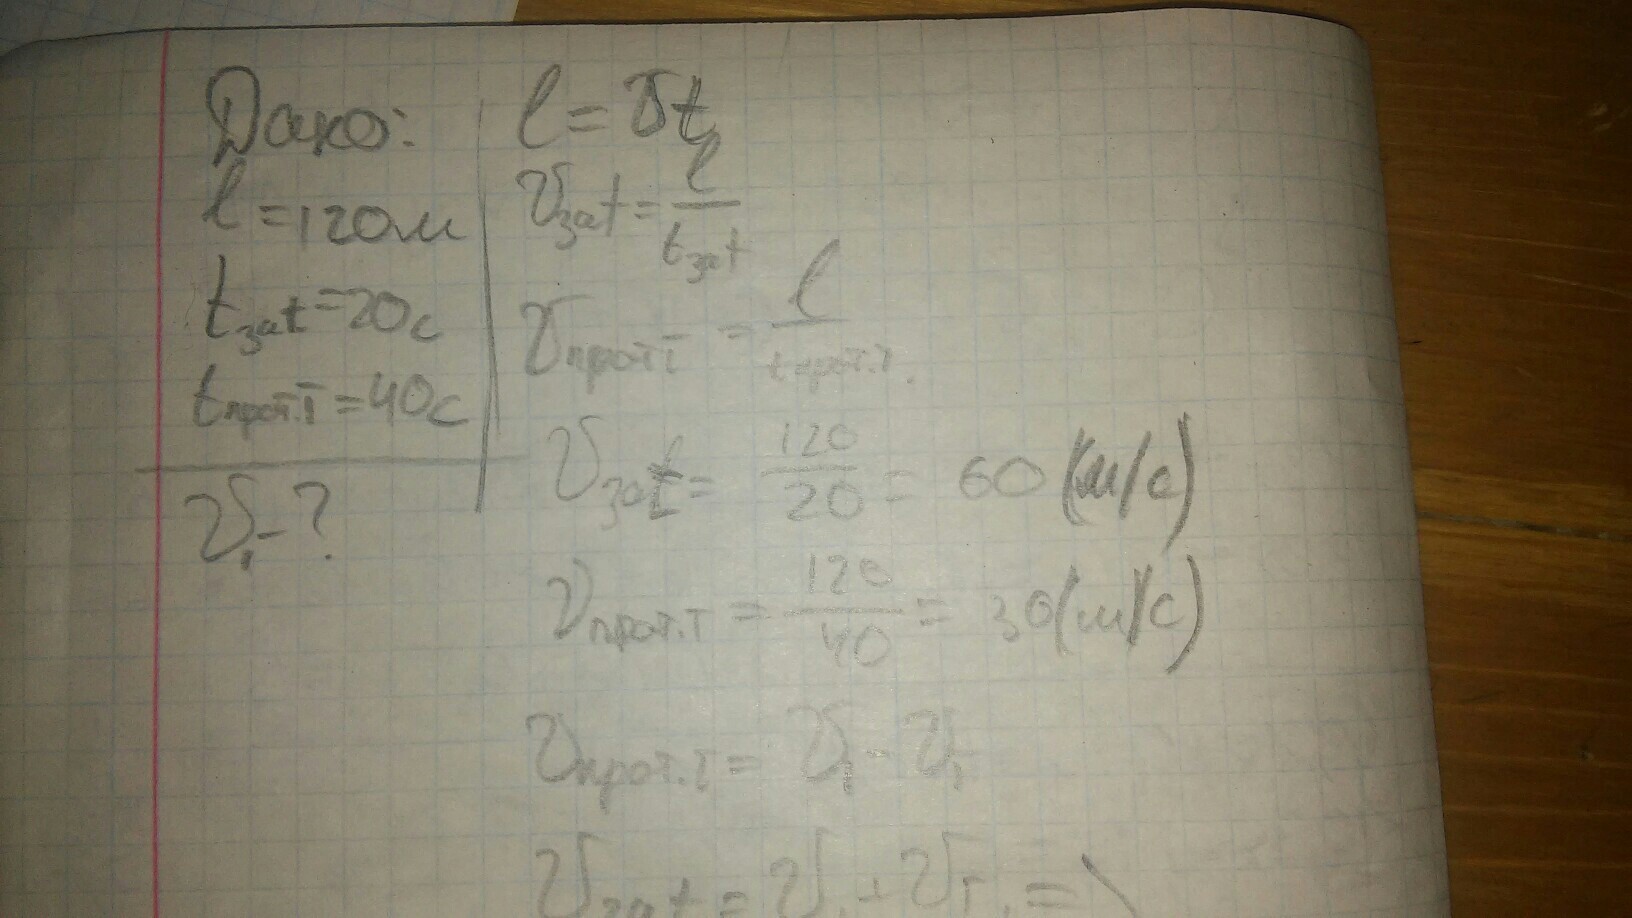 Дано:
l = 120м
tзат = 20с
tпрот.т = 40с
V₁ - ?
l = Vt
Vзат = l / tзат
Vпрот.т = l / tпрот.т.
Vзат = 120 / 20 = 60 (м/с)
Vпрот.т = 120 / 40 = 30 (м/с)
Vпрот.т = V₁ - Vт
Vзат = V₁ + Vт. =>